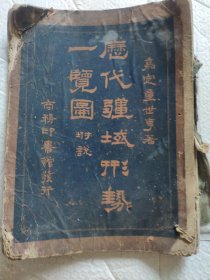 嘉定童世亨著
歷代疆域形勢
一覽圖 附説
商務印書館發行